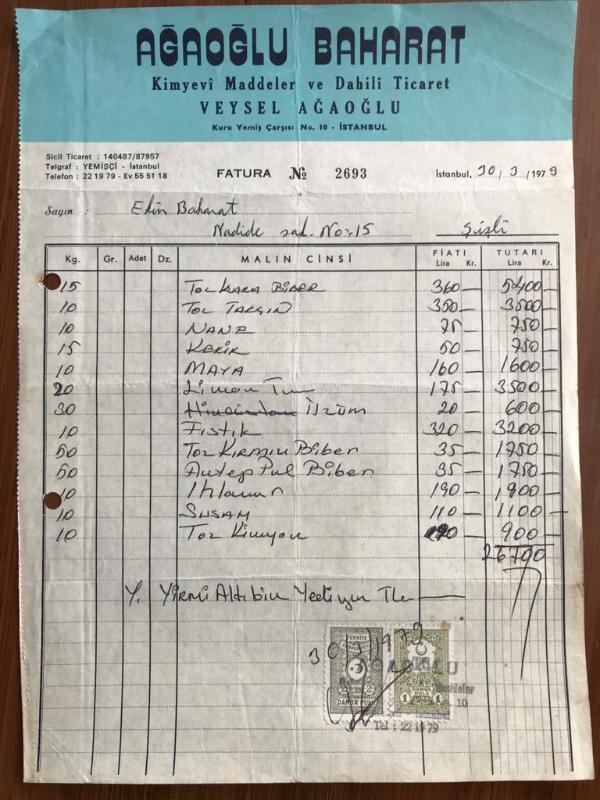 AĞAOĞLU BAHARAT
Kimyevî Maddeler ve Dahilî Ticaret
VEYSEL AĞAOĞLU
Kuru Yemiş Çarşısı No. 10 - İSTANBUL
Sicil Ticaret : 140487/87957
Telgraf : YEMİŞÇİ - İstanbul
Telefon : 22 19 79 - Ev 55 51 18
FATURA № 2693
İstanbul, 30/3/1979
Sayın : Elin Baharat
Nadide sok. No=15 Şişli
Kg. Gr. Adet Dz. MALIN CİNSİ FİATI Lira Kr. TUTARI Lira Kr.
15 Toz Kara Biber 360 — 5400 —
10 Toz TARÇIN 350 — 3500 —
10 NANE 75 — 750 —
15 KEKİK 50 — 750 —
10 MAYA 160 — 1600 —
20 Limon Tuzu 175 — 3500 —
30 Üzüm 20 — 600 —
10 Fıstık 320 — 3200 —
50 Toz Kırmızı Biber 35 — 1750 —
50 Antep Pul Biber 35 — 1750 —
10 Ihlamur 190 — 1900 —
10 SUSAM 110 — 1100 —
10 Toz Kimyon 90 — 900 —
26700
Y. Yirmi Altıbin Yediyüz TL
30/3/1979
TÜRKİYE
DAMGA PULU
1 1
AĞAOĞLU
Maddeler
10
İstanbul
Tel : 22 19 79